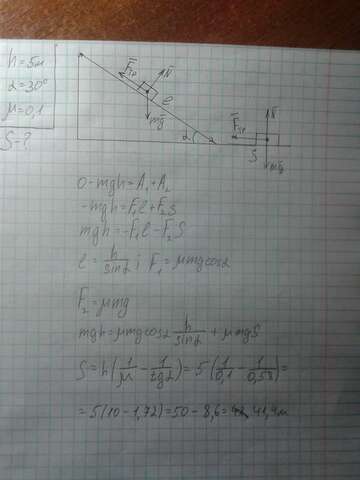 h = 5м
α = 30°
μ = 0,1
S - ?
F̄тр N̄
ℓ
mḡ
α
N̄
F̄тр
S
mḡ
0 - mgh = A₁ + A₂
- mgh = F₁ℓ + F₂S
mgh = -F₁ℓ - F₂S
ℓ = h/sinα ; F₁ = μmgcosα
F₂ = μmg
mgh = μmgcosα h/sinα + μmgS
S = h(1/μ - 1/tgα) = 5(1/0,1 - 1/0,58) =
= 5(10 - 1,72) = 50 - 8,6 = 41,4м